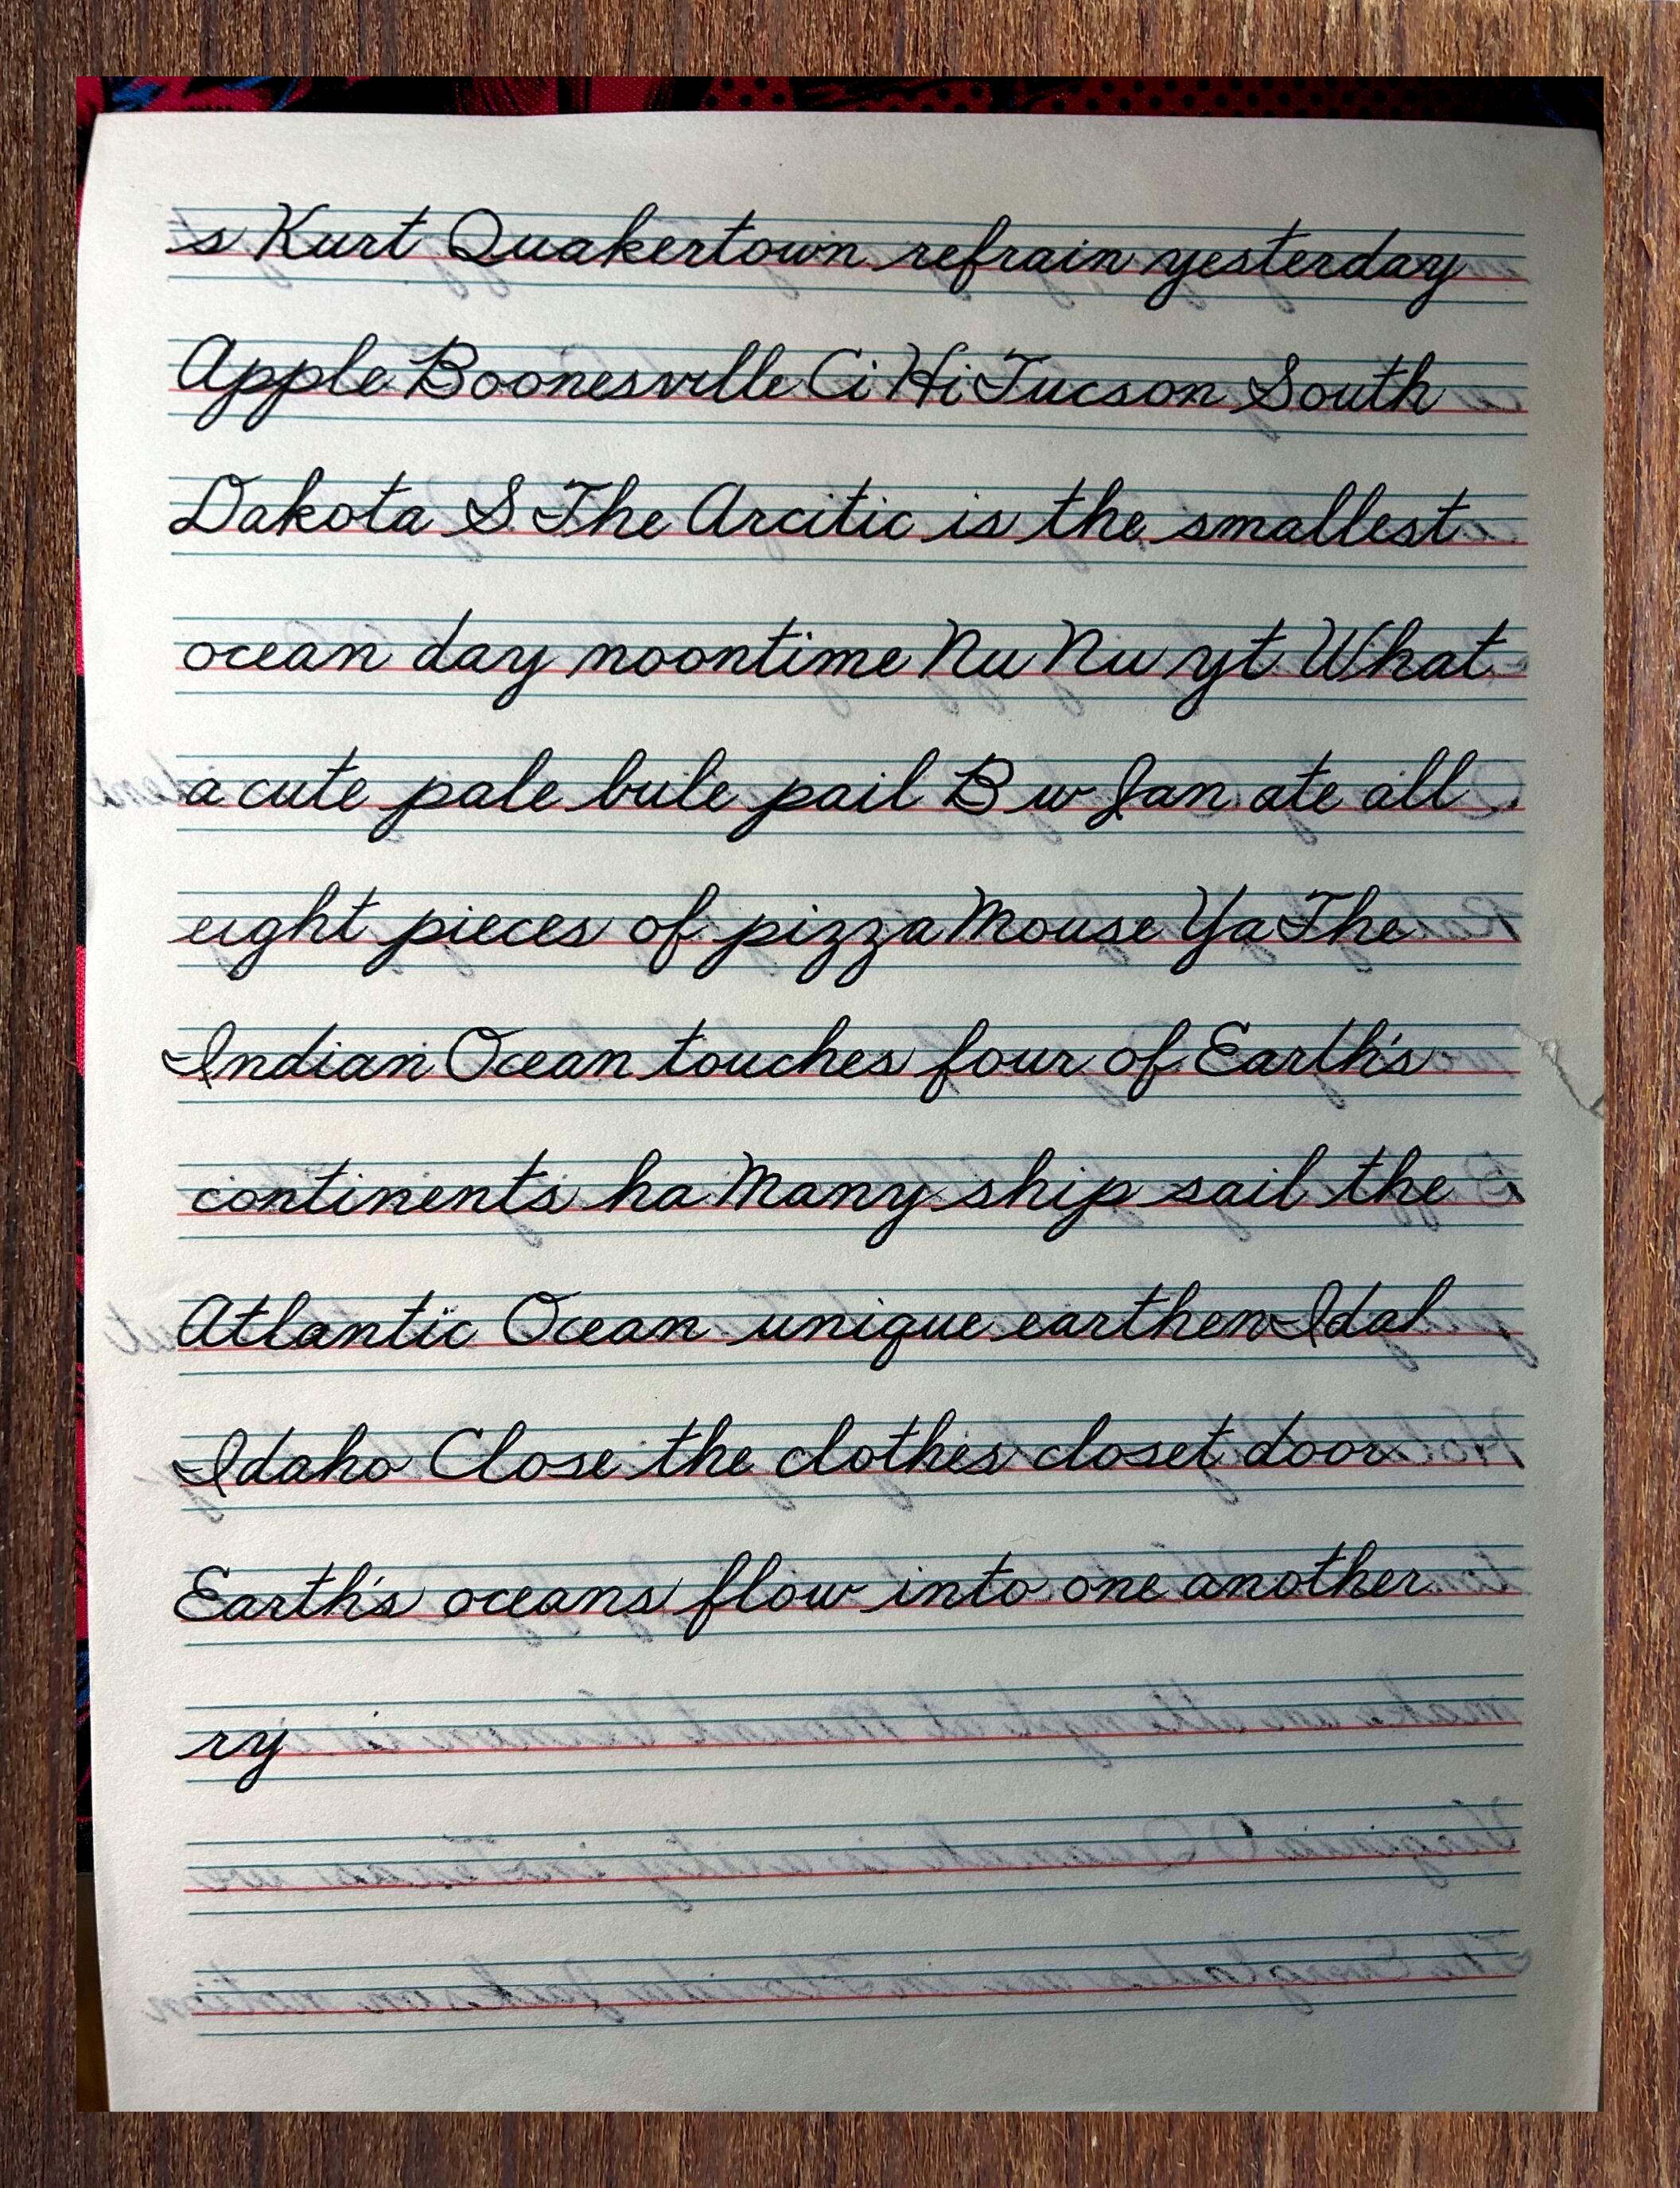 s Kurt Quakertown refrain yesterday
Apple Boonesville Ci Hi Tucson South
Dakota S The Arcitic is the smallest
ocean day noontime Nu Nu yt What
a cute pale bule pail B w Jan ate all
eight pieces of pizza Mouse Ya The
Indian Ocean touches four of Earth's
continents ha Many ship sail the
Atlantic Ocean unique earthen Idal
Idaho Close the clothes closet door
Earth's oceans flow into one another
ry